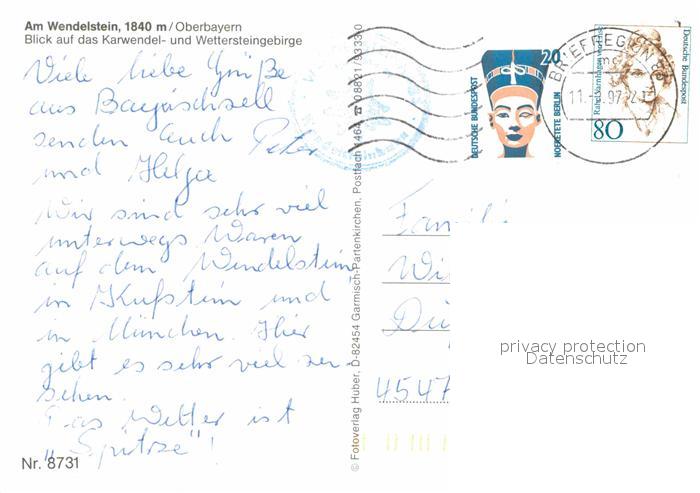 Am Wendelstein, 1840 m/Oberbayern
Blick auf das Karwendel- und Wettersteingebirge
Viele liebe Grüße
aus Bayrischzell
senden Euch Peter
und Helga
Wir sind sehr viel
unterwegs Waren
auf dem Wendelstein
in Kufstein und
in München. Hier
gibt es sehr viel zu
sehen.
Das Wetter ist
"Spitze"!
Nr. 8731
© Fotoverlag Huber, D-82454 Garmisch-Partenkirchen, Postfach 1464, ☎ 08821/93330
DEUTSCHE BUNDESPOST
20
NOFRETETE BERLIN
BRIEFREGION
Deutsche Bundespost
80
Famili
Wi
4547
privacy protection
Datenschutz